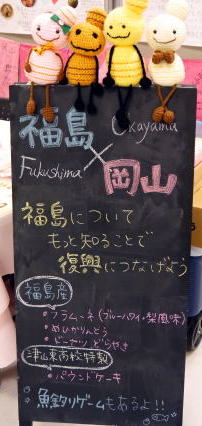 福島
Okayama
×
Fukushima
岡山
福島について
もっと知ることで
復興につなげよう
福島産
・フラムーネ(ブルーハワイ・梨風味)
・めひかりとう
・ビーカツどらやき
津山東高校特製
・パウンドケーキ
魚釣りゲームもあるよ!!